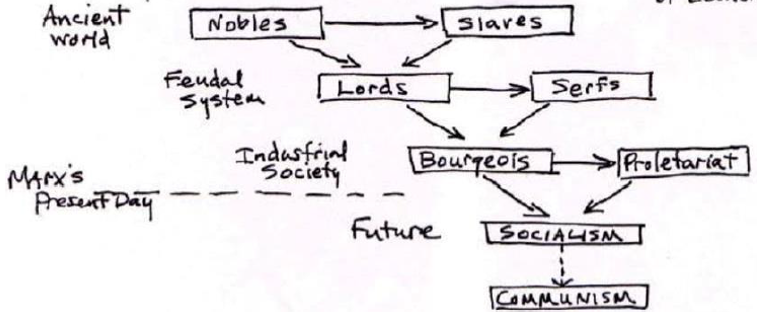 Ancient
World
Nobles
Slaves
Feudal
System
Lords
Serfs
Industrial
Society
Bourgeois
Proletariat
Marx's
Present Day
Future
SOCIALISM
COMMUNISM